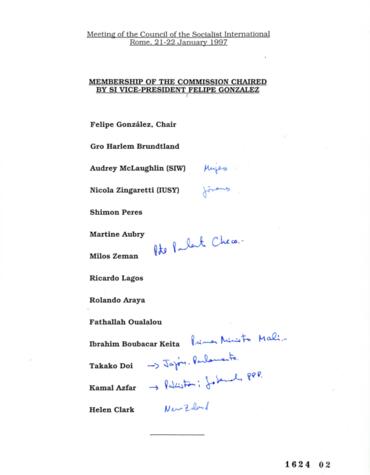 Meeting of the Council of the Socialist International
Rome, 21-22 January 1997
MEMBERSHIP OF THE COMMISSION CHAIRED
BY SI VICE-PRESIDENT FELIPE GONZALEZ
Felipe González, Chair
Gro Harlem Brundtland
Audrey McLaughlin (SIW) Mujeres
Nicola Zingaretti (IUSY) Jóvenes
Shimon Peres
Martine Aubry
Pte Parlamento Checo.-
Milos Zeman
Ricardo Lagos
Rolando Araya
Fathallah Oualalou
Ibrahim Boubacar Keita Primer Ministro Mali.-
Takako Doi → Japón. Parlamento
Kamal Azfar → Pakistan: PPP.
Helen Clark New Zeland
1624 02